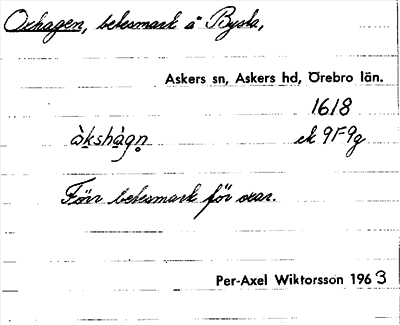 Oxhagen, betesmark å Bysta,
Askers sn, Askers hd, Örebro län.
1618
àkshàgn̥ ek 9F9g
Förr betesmark för oxar.
Per-Axel Wiktorsson 1963